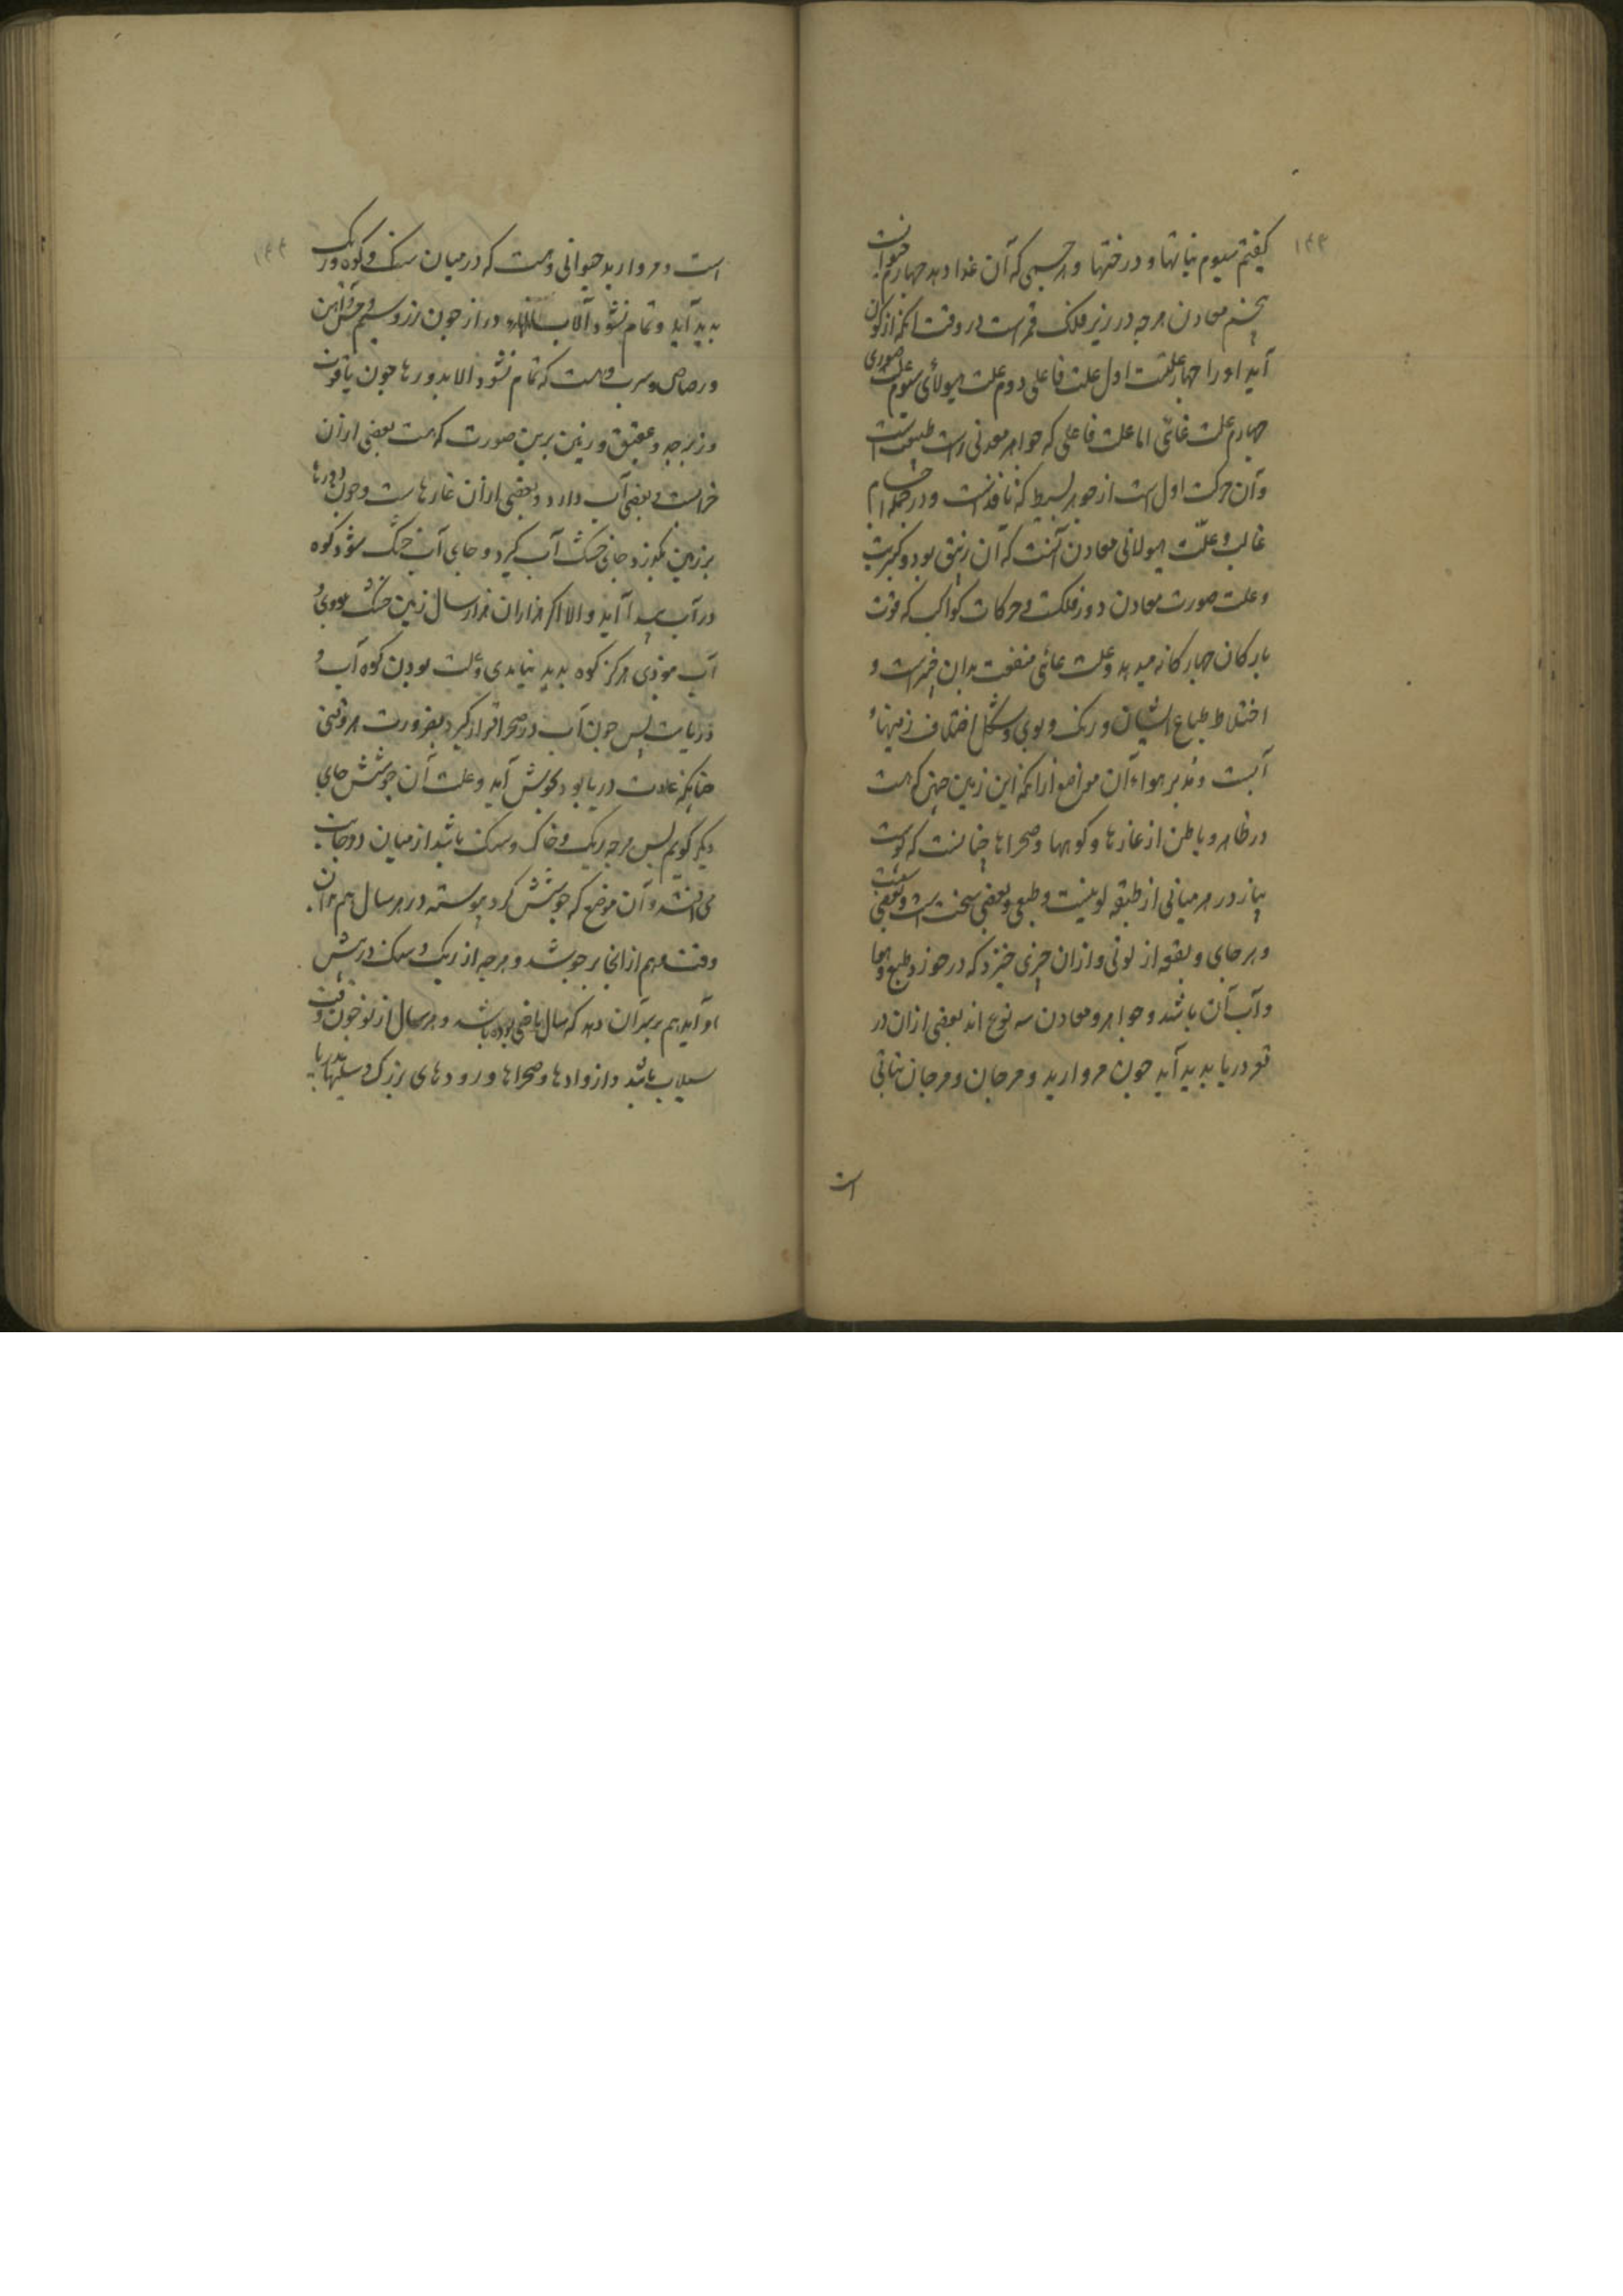 ۱۴۳
کیفتم سیوم نباتها و درختها و هر جسمی که آن غذا دهد چهارم حیوانست
پنجم معادن هرچه در زیر فلک قمرست در وقت آنکه از کون
آید او را چهار علتست اول علت فاعلی دوم علت هیولائی سیوم علت صوری
چهارم علت غائی اما علت فاعلی که جواهر معدنی راست طبیعت است
و آن حرکت اول است از جوهر بسیط که نافذست و در جمله اجسام
غالب و علت هیولانی معادن آنست که آن زیبق بود و کبریت
و علت صورت معادن دور فلکست و حرکات کواکب که قوت
بارکان چهارکانه میدهد و علت غائی منفعت بدان خیرست و
اختلاط طباع ایشان و رنک و بوی و شکل اختلاف زمینها و
آبست و تدبیر هواء آن مواضع ازانکه این زمین چنین که هست
در ظاهر و باطن از غارها و کوهها و صحراها چنانست که پوست
پیاز در هر میانی از طبقه لونیست و طبعی و بعضی سخت است و بعضی سست
و هر جای و بقعه از لونی و ازان چیزی خیزد که درخور طبع و هوا
و آب آن باشد و جواهر و معادن سه نوع اند بعضی ازان در
قعر دریا پدید آید چون مروارید و مرجان و مرجان نباتی
است
۱۴۴
است و مروارید حیوانی و هست که در میان سنک و کوه و ریک
پدید آید و تمام نشود الا بسالهاء دراز چون زر و سیم و مس و آهن
و رصاص و سرب و هست که تمام نشود الا بدورها چون یاقوت
و زبرجد و عقیق و زمین برین صورت که هست بعضی ازان
خرابست و بعضی آب دارد و بعضی ازان غارهاست و چون دورها
بر زمین بگذرد جای خشک آب گیرد و جای آب خشک شود و کوه
در آب پیدا آید و الا اگر هزاران هزار سال زمین خشک بودی و
آب موذی هرگز کوه پدید نیامدی و علت بودن کوه آب و
دریاست پس چون آب در صحرا قرار گیرد بضرورت هر وقتی
چنانکه عادت دریا بود بجوش آید و علت آن جوشش جای
دیگر گویم پس هرچه ریک و خاک و سنک باشد از میان دو جانب
می افشد و آن موضع که جوشش کرد پیوسته در هر سال هم بدان
وقت و هم از آنجا بر جوشد و هرچه از ریک و سنک در پیش
او آید هم بر سر آن دهد که سال ماضی بوده باشد و هر سال از نو چون وقت
سیلاب باشد و از وادها و صحراها و رودهای بزرگ و سیلها بدریا